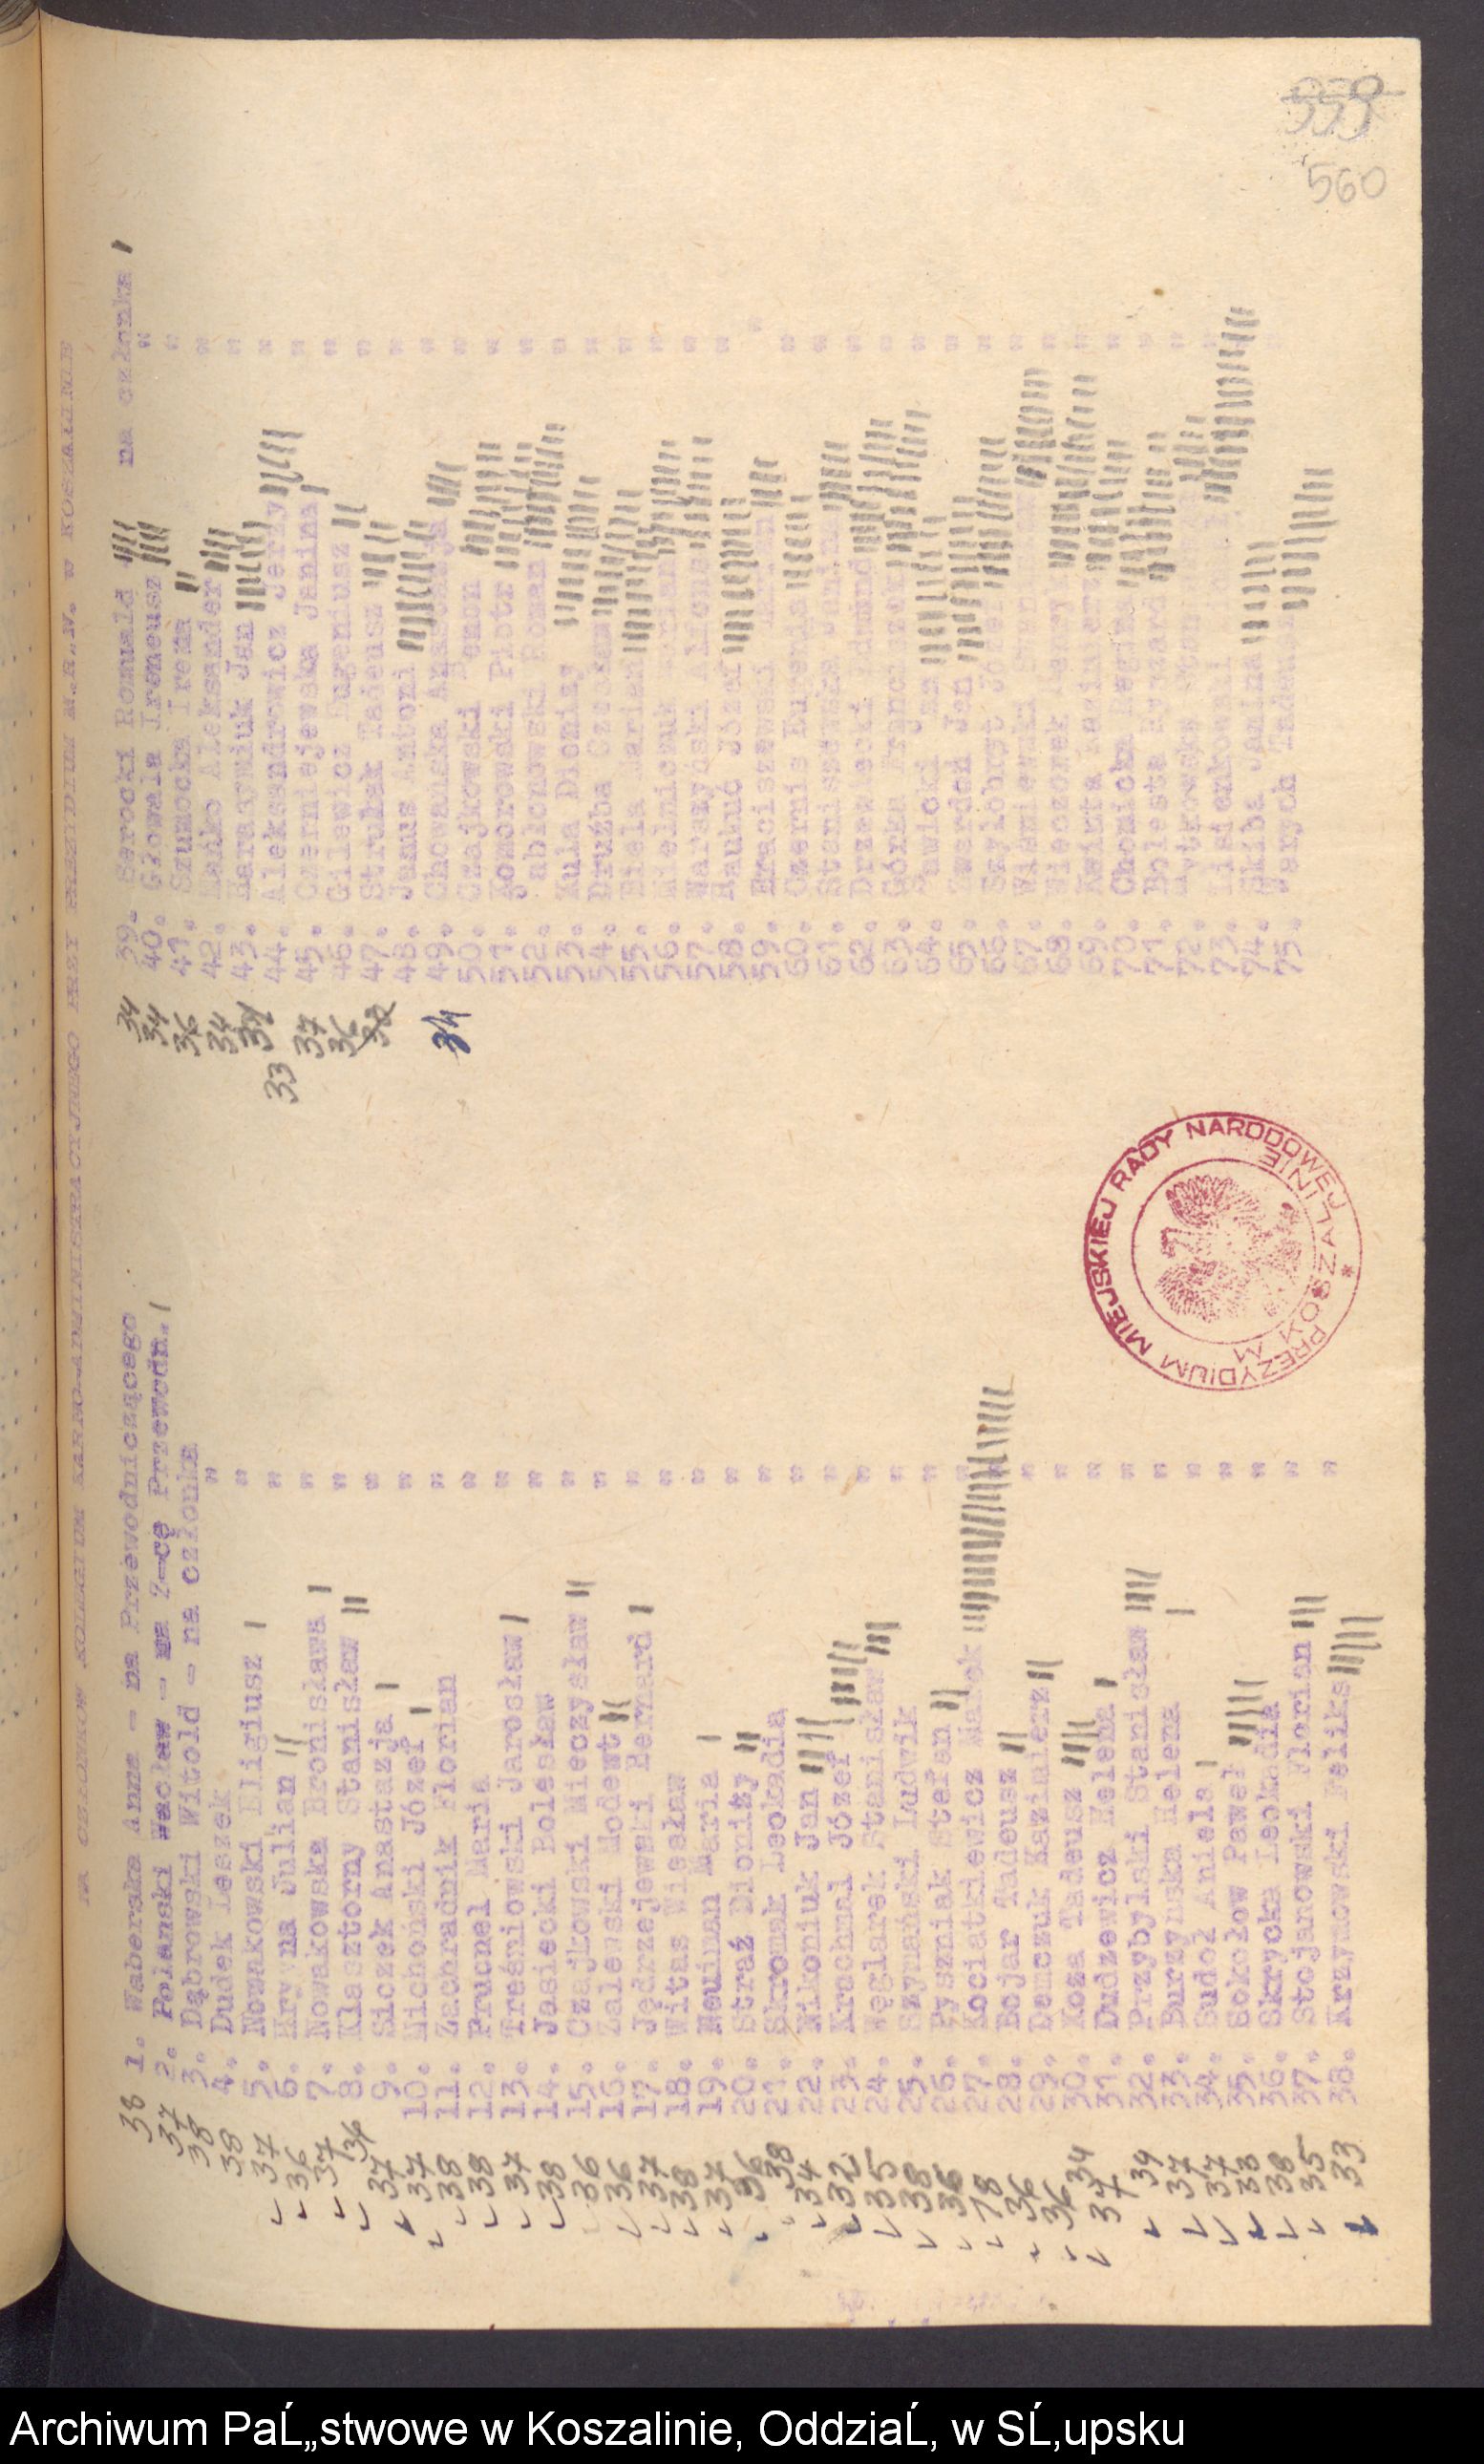 559
560
NA CZŁONKÓW KOLEGIUM KARNO-ADMINISTRACYJNEGO PRZY PREZYDIUM M.R.N. w KOSZALINIE
38 1. Waberska Anna - na Przewodniczącego
37 2. Polanski Wacław - na Z-cę Przewodn.
38 3. Dąbrowski Witold - na członka
38 4. Dudek Leszek "
37 5. Nowakowski Eligiusz "
36 6. Hrywna Julian "
37 7. Nowakowska Bronisława "
36 8. Klasztorny Stanisław "
37 9. Siczek Anastazja "
37 10. Michoński Józef "
38 11. Zachradnik Florian "
38 12. Prucnel Maria "
37 13. Treśniowski Jarosław "
38 14. Jasiecki Bolesław "
36 15. Czajkowski Mieczysław "
36 16. Zalewski Modewt "
37 17. Jędrzejewski Bernard "
38 18. Witas Wiesław "
37 19. Neuman Maria "
36 20. Straź Dioniży "
38 21. Skromak Leokadia "
34 22. Nikoniuk Jan "
32 23. Krachnal Józef "
35 24. Węglarek Stanisław "
38 25. Szymański Ludwik "
36 26. Pyszniak Stefan "
78 27. Kociatkiewicz Marek "
36 28. Bojar Tadeusz "
36 29. Demczuk Kazimierz "
34 30. Koza Tadeusz "
37 31. Dudzewicz Helena "
34 32. Przybylski Stanisław "
37 33. Burzyńska Helena "
37 34. Sudoł Aniela "
33 35. Sokołow Paweł "
38 36. Skrycka Leokadia "
35 37. Stojanowski Florian "
33 38. Krzynowski Feliks "
34 39. Serocki Romuald na członka
34 40. Głowala Ireneusz "
36 41. Szumocka Irena "
34 42. Mańko Aleksander "
43. Harasymiuk Jan "
33 44. Aleksandrowicz Jerzy "
37 45. Czerniejewska Janina "
36 46. Gilewicz Eugeniusz "
47. Strulak Tadeusz "
48. Janus Antoni "
34 49. Chowańska Anastazja "
50. Czajkowski Zenon "
51. Komorowski Piotr "
52. Jabłonowski Roman "
53. Kula Dionizy "
54. Drużba Czesław "
55. Biela Marian "
56. Mielniczuk Marian "
57. Warszyński Alfons "
58. Raukuć Józef "
59. Braciszewski "
60. Czernis Eugenia "
61. Staniszewska Janina "
62. Drzemiecki Edmund "
63. Górka Franciszek "
64. Sawicki Jan "
65. Zwardoń Jan "
66. Szylobryt Józef "
67. Wiśniewski "
68. Wieczorek Henryk "
69. Kwinta Kazimierz "
70. Chomicka Regina "
71. Bolesta Ryszard "
72. "
73. Lisienkowski "
74. Skiba Janina "
75. Werych Tadeusz "
PREZYDIUM MIEJSKIEJ RADY NARODOWEJ
W KOSZALINIE
Archiwum PaĹ„stwowe w Koszalinie, OddziaĹ‚ w SĹ‚upsku